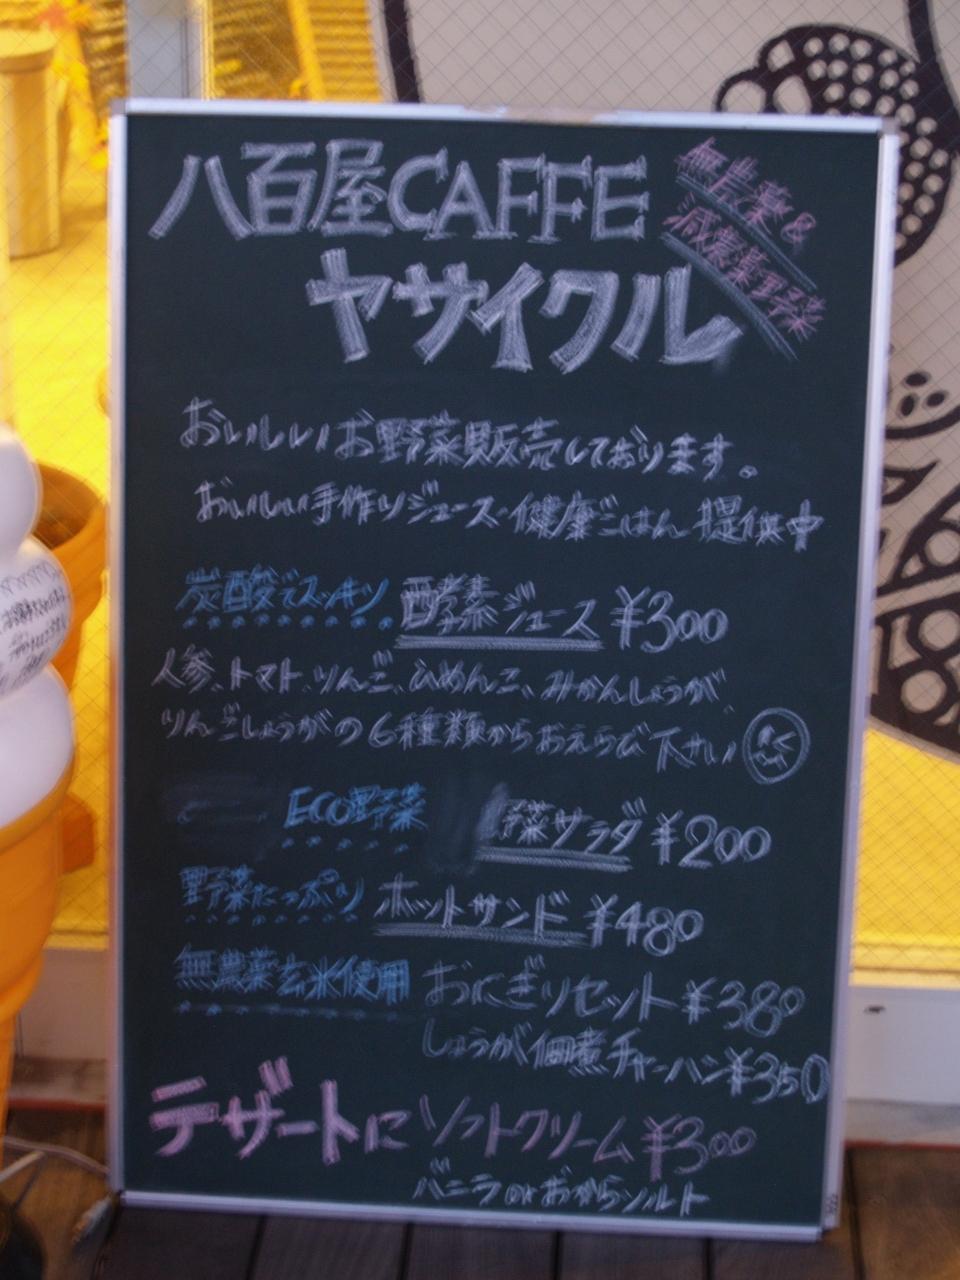 八百屋CAFFE
無農薬&
減農薬野菜
ヤサイクル
おいしいお野菜販売しております。
おいしい手作りジュース・健康ごはん提供中
炭酸でスッキリ 酵素ジュース ¥300
人参、トマト、りんご、ひめんこ、みかんしょうが
りんごしょうがの6種類からおえらび下さい
ECO野菜 野菜サラダ ¥200
野菜たっぷり ホットサンド ¥480
無農薬玄米使用 おにぎりセット ¥380
しょうが佃煮チャーハン¥350
デザートに ソフトクリーム ¥300
バニラorおからソルト